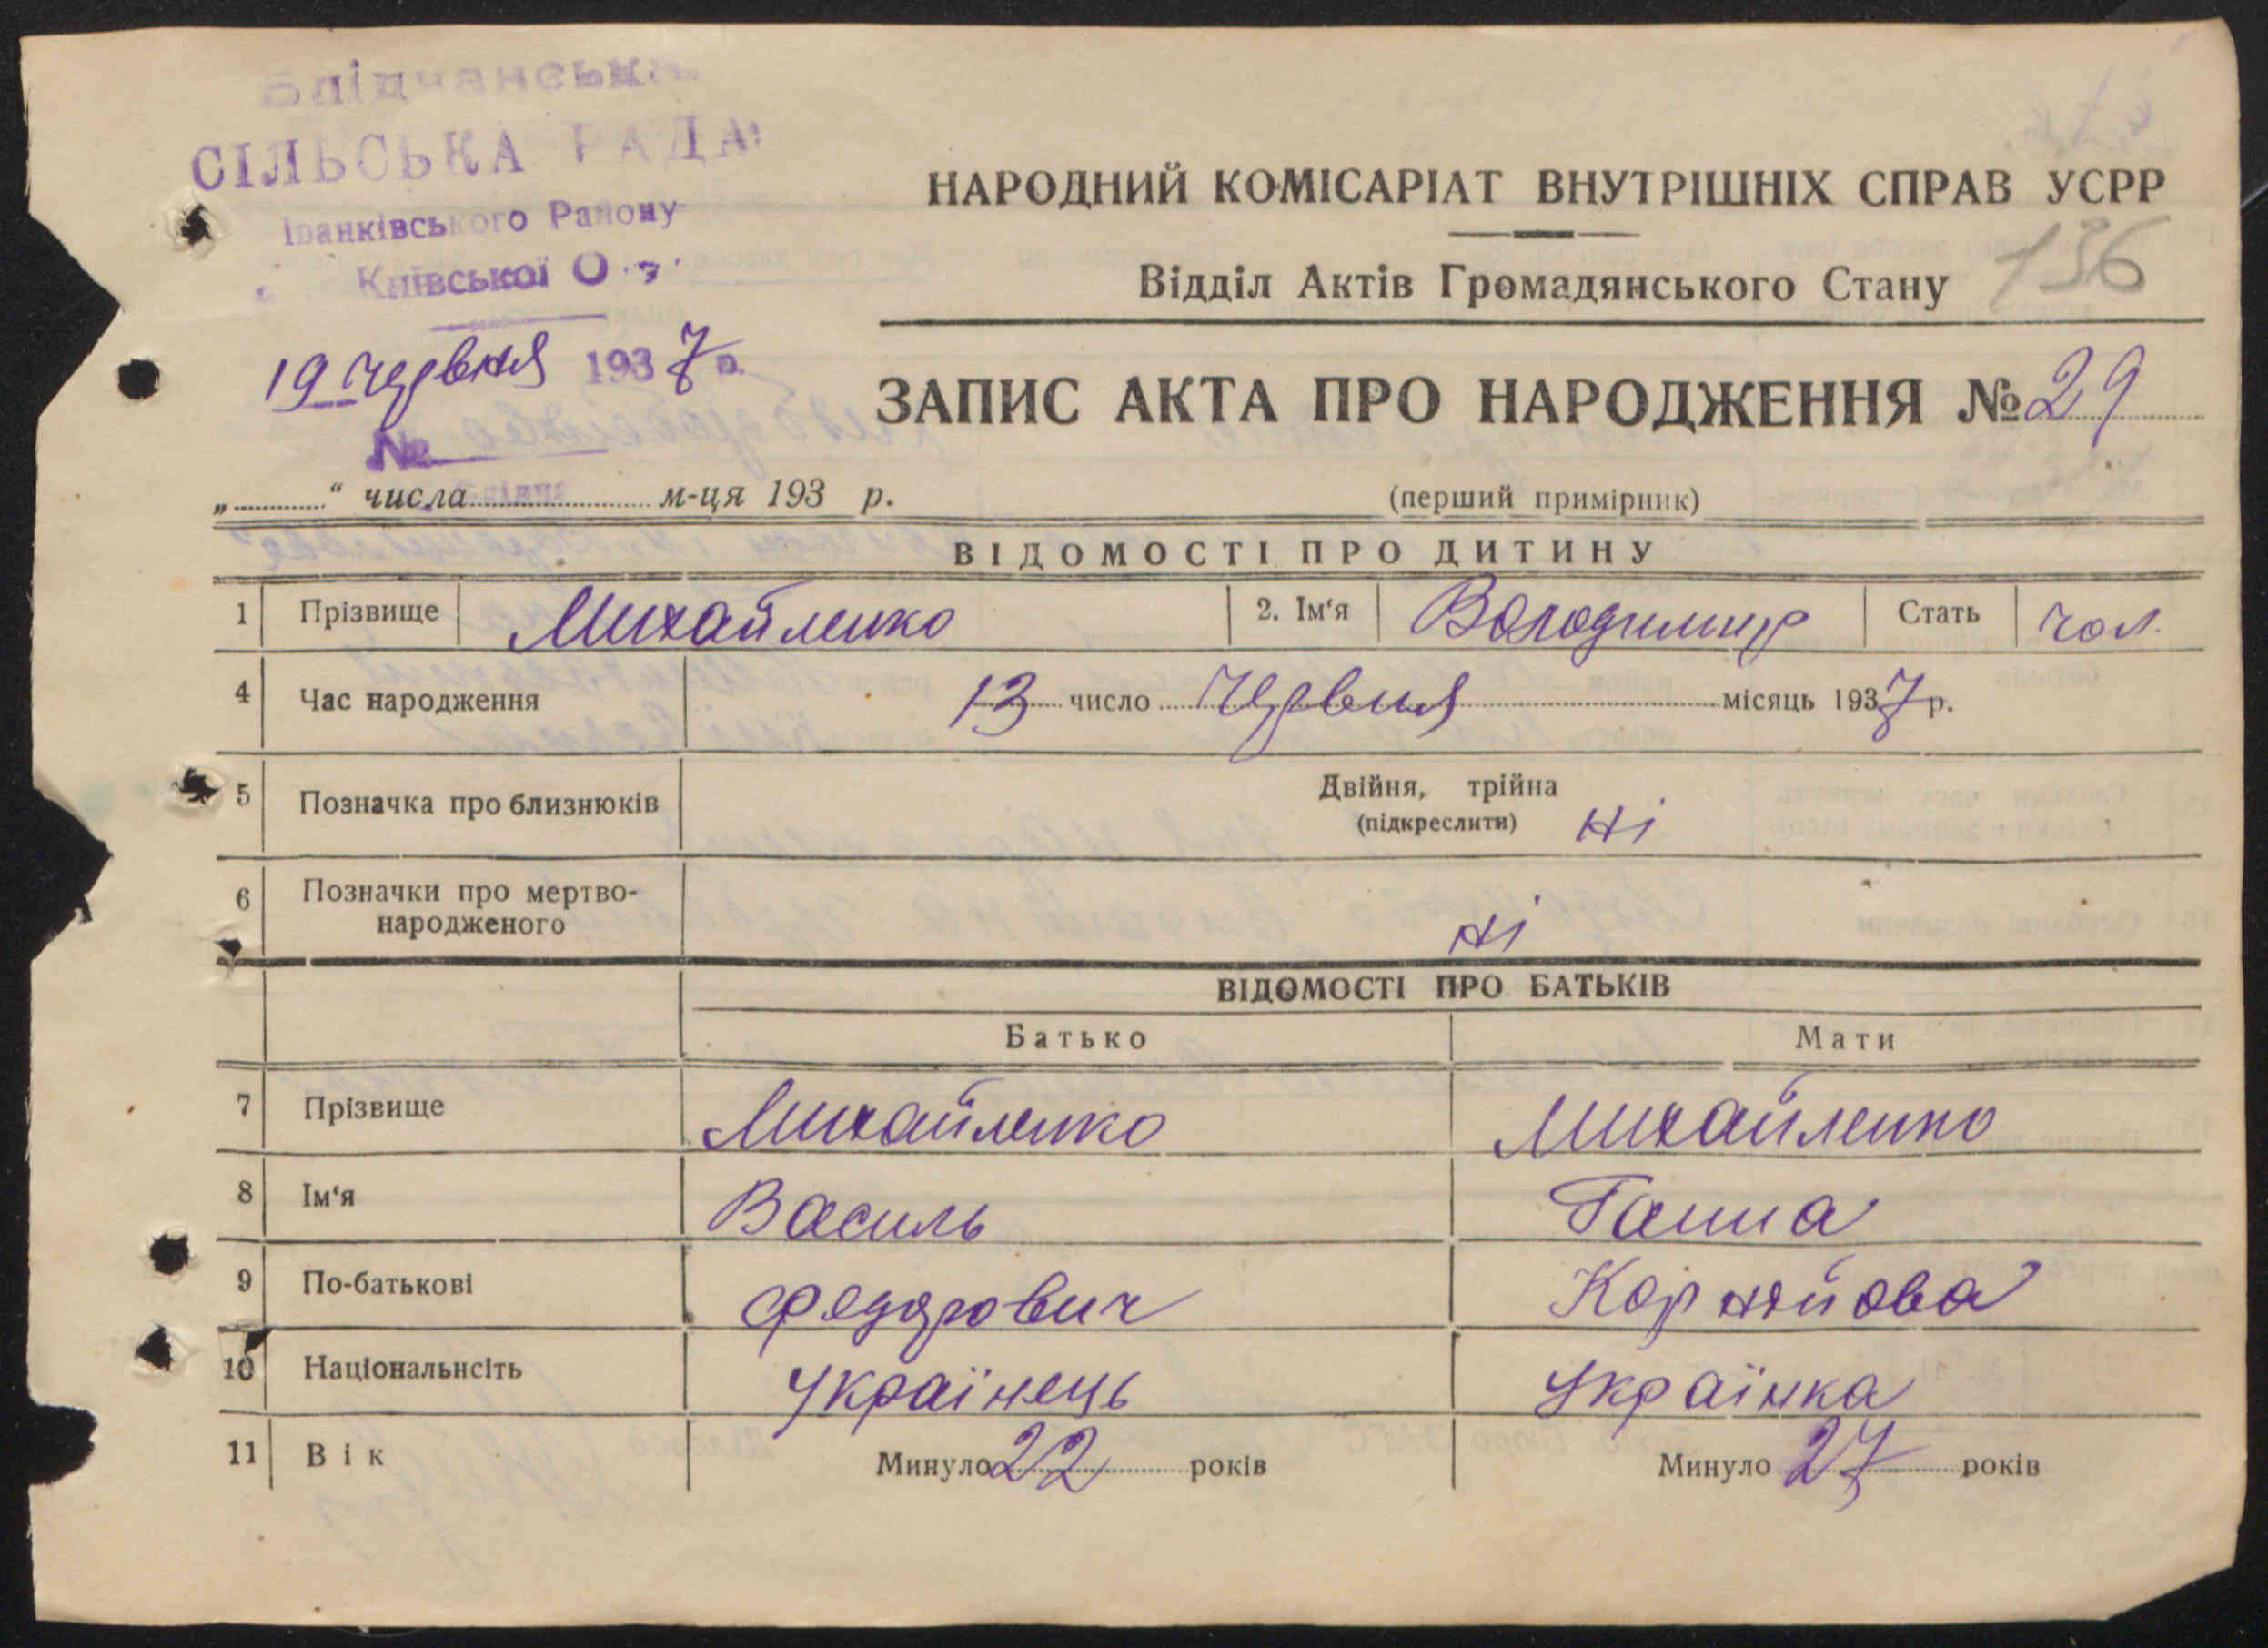 Блідчанська
СІЛЬСЬКА РАДА
Іванківського Району
Київської О
19 Червня 1937 р.
№
НАРОДНИЙ КОМІСАРІАТ ВНУТРІШНІХ СПРАВ УСРР
Відділ Актів Громадянського Стану 136
ЗАПИС АКТА ПРО НАРОДЖЕННЯ № 29
„ “ числа м-ця 193 р.
(перший примірник)
ВІДОМОСТІ ПРО ДИТИНУ
1 Прізвище Михайленко 2. Ім‘я Володимир Стать чол.
4 Час народження 13 число Червня місяць 1937 р.
5 Позначка про близнюків Двійня, трійна
(підкреслити) Ні
6 Позначки про мертво-
народженого Ні
ВІДОМОСТІ ПРО БАТЬКІВ
Батько Мати
7 Прізвище Михайленко Михайленко
8 Ім‘я Василь Ганна
9 По-батькові Федорович Корнійова
10 Національнсіть Українець Українка
11 Вік Минуло 22 років Минуло 27 років